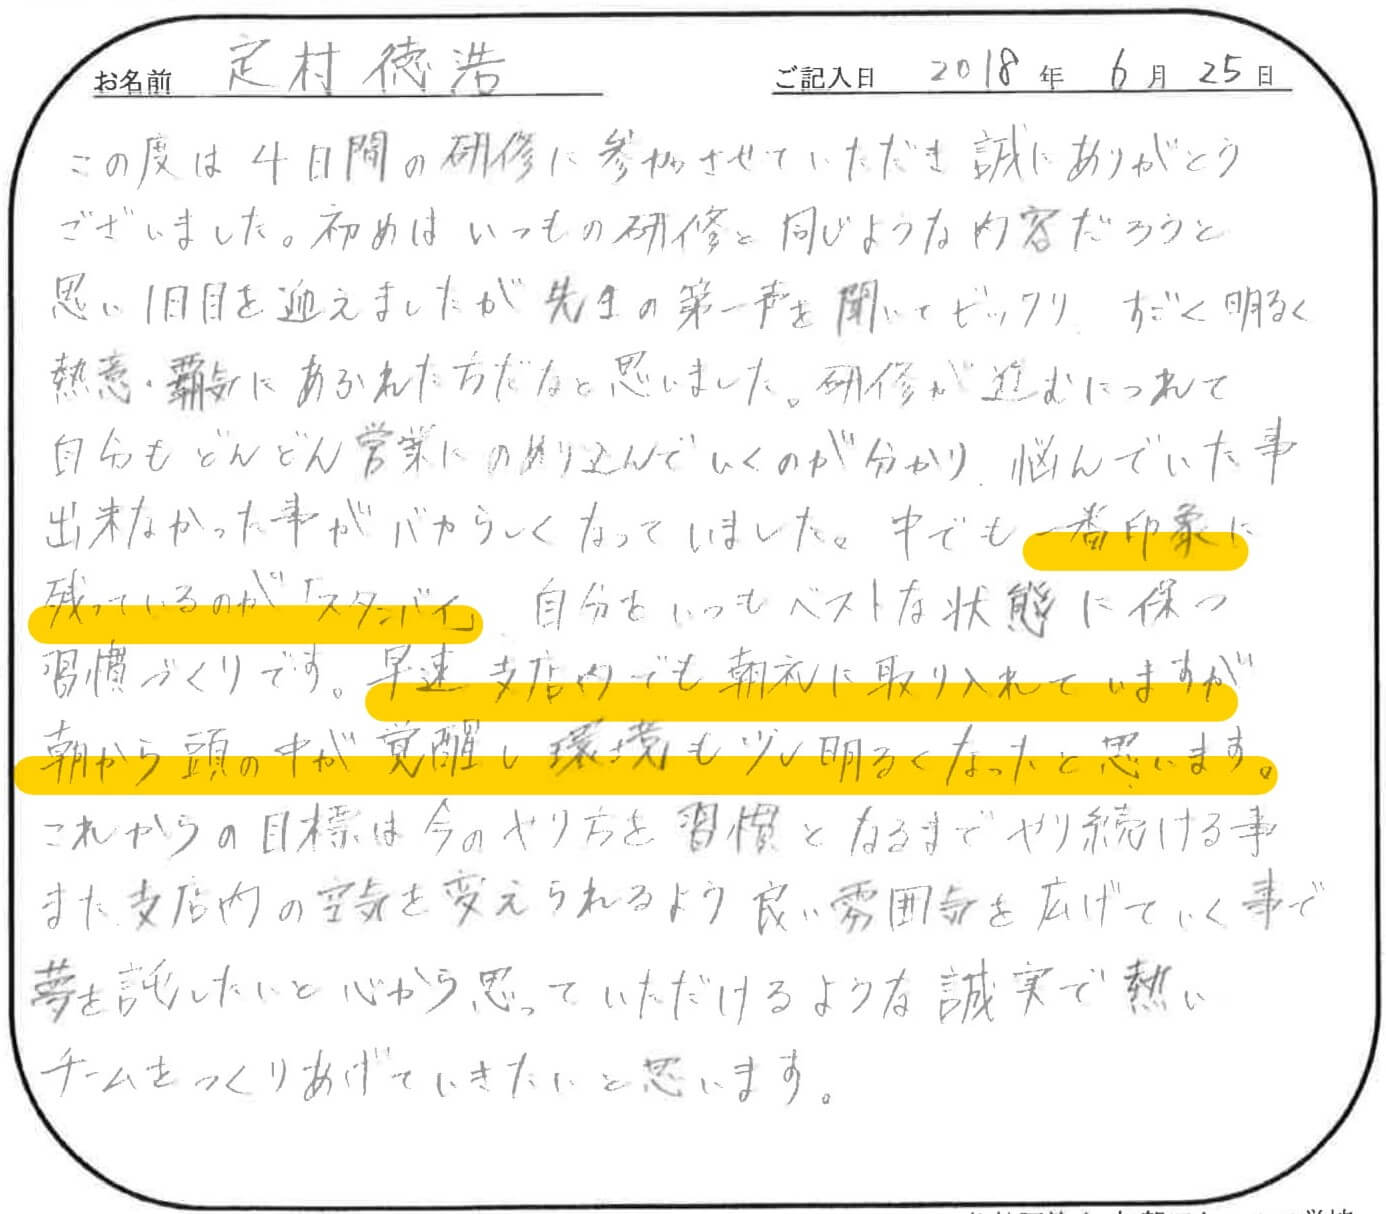 お名前 定村徳浩 ご記入日 2018年 6月 25日
この度は4日間の研修に参加させていただき誠にありがとう
ございました。初めはいつもの研修と同じような内容だろうと
思い1日目を迎えましたが先生の第一声を聞いてビックリ、すごく明るく
熱意・覇気にあふれた方だなと思いました。研修が進むにつれて
自分もどんどん営業にのめり込んでいくのが分かり、悩んでいた事
出来なかった事がバカらしくなっていました。中でも一番印象に
残っているのが「スタンバイ」、自分をいつもベストな状態に保つ
習慣づくりです。早速支店内でも朝礼に取り入れていますが
朝から頭の中が覚醒し環境も少し明るくなったと思います。
これからの目標は今のやり方を習慣となるまでやり続ける事
また支店内の空気を変えられるよう良い雰囲気を広げていく事で
夢を託したいと心から思っていただけるような誠実で熱い
チームをつくりあげていきたいと思います。